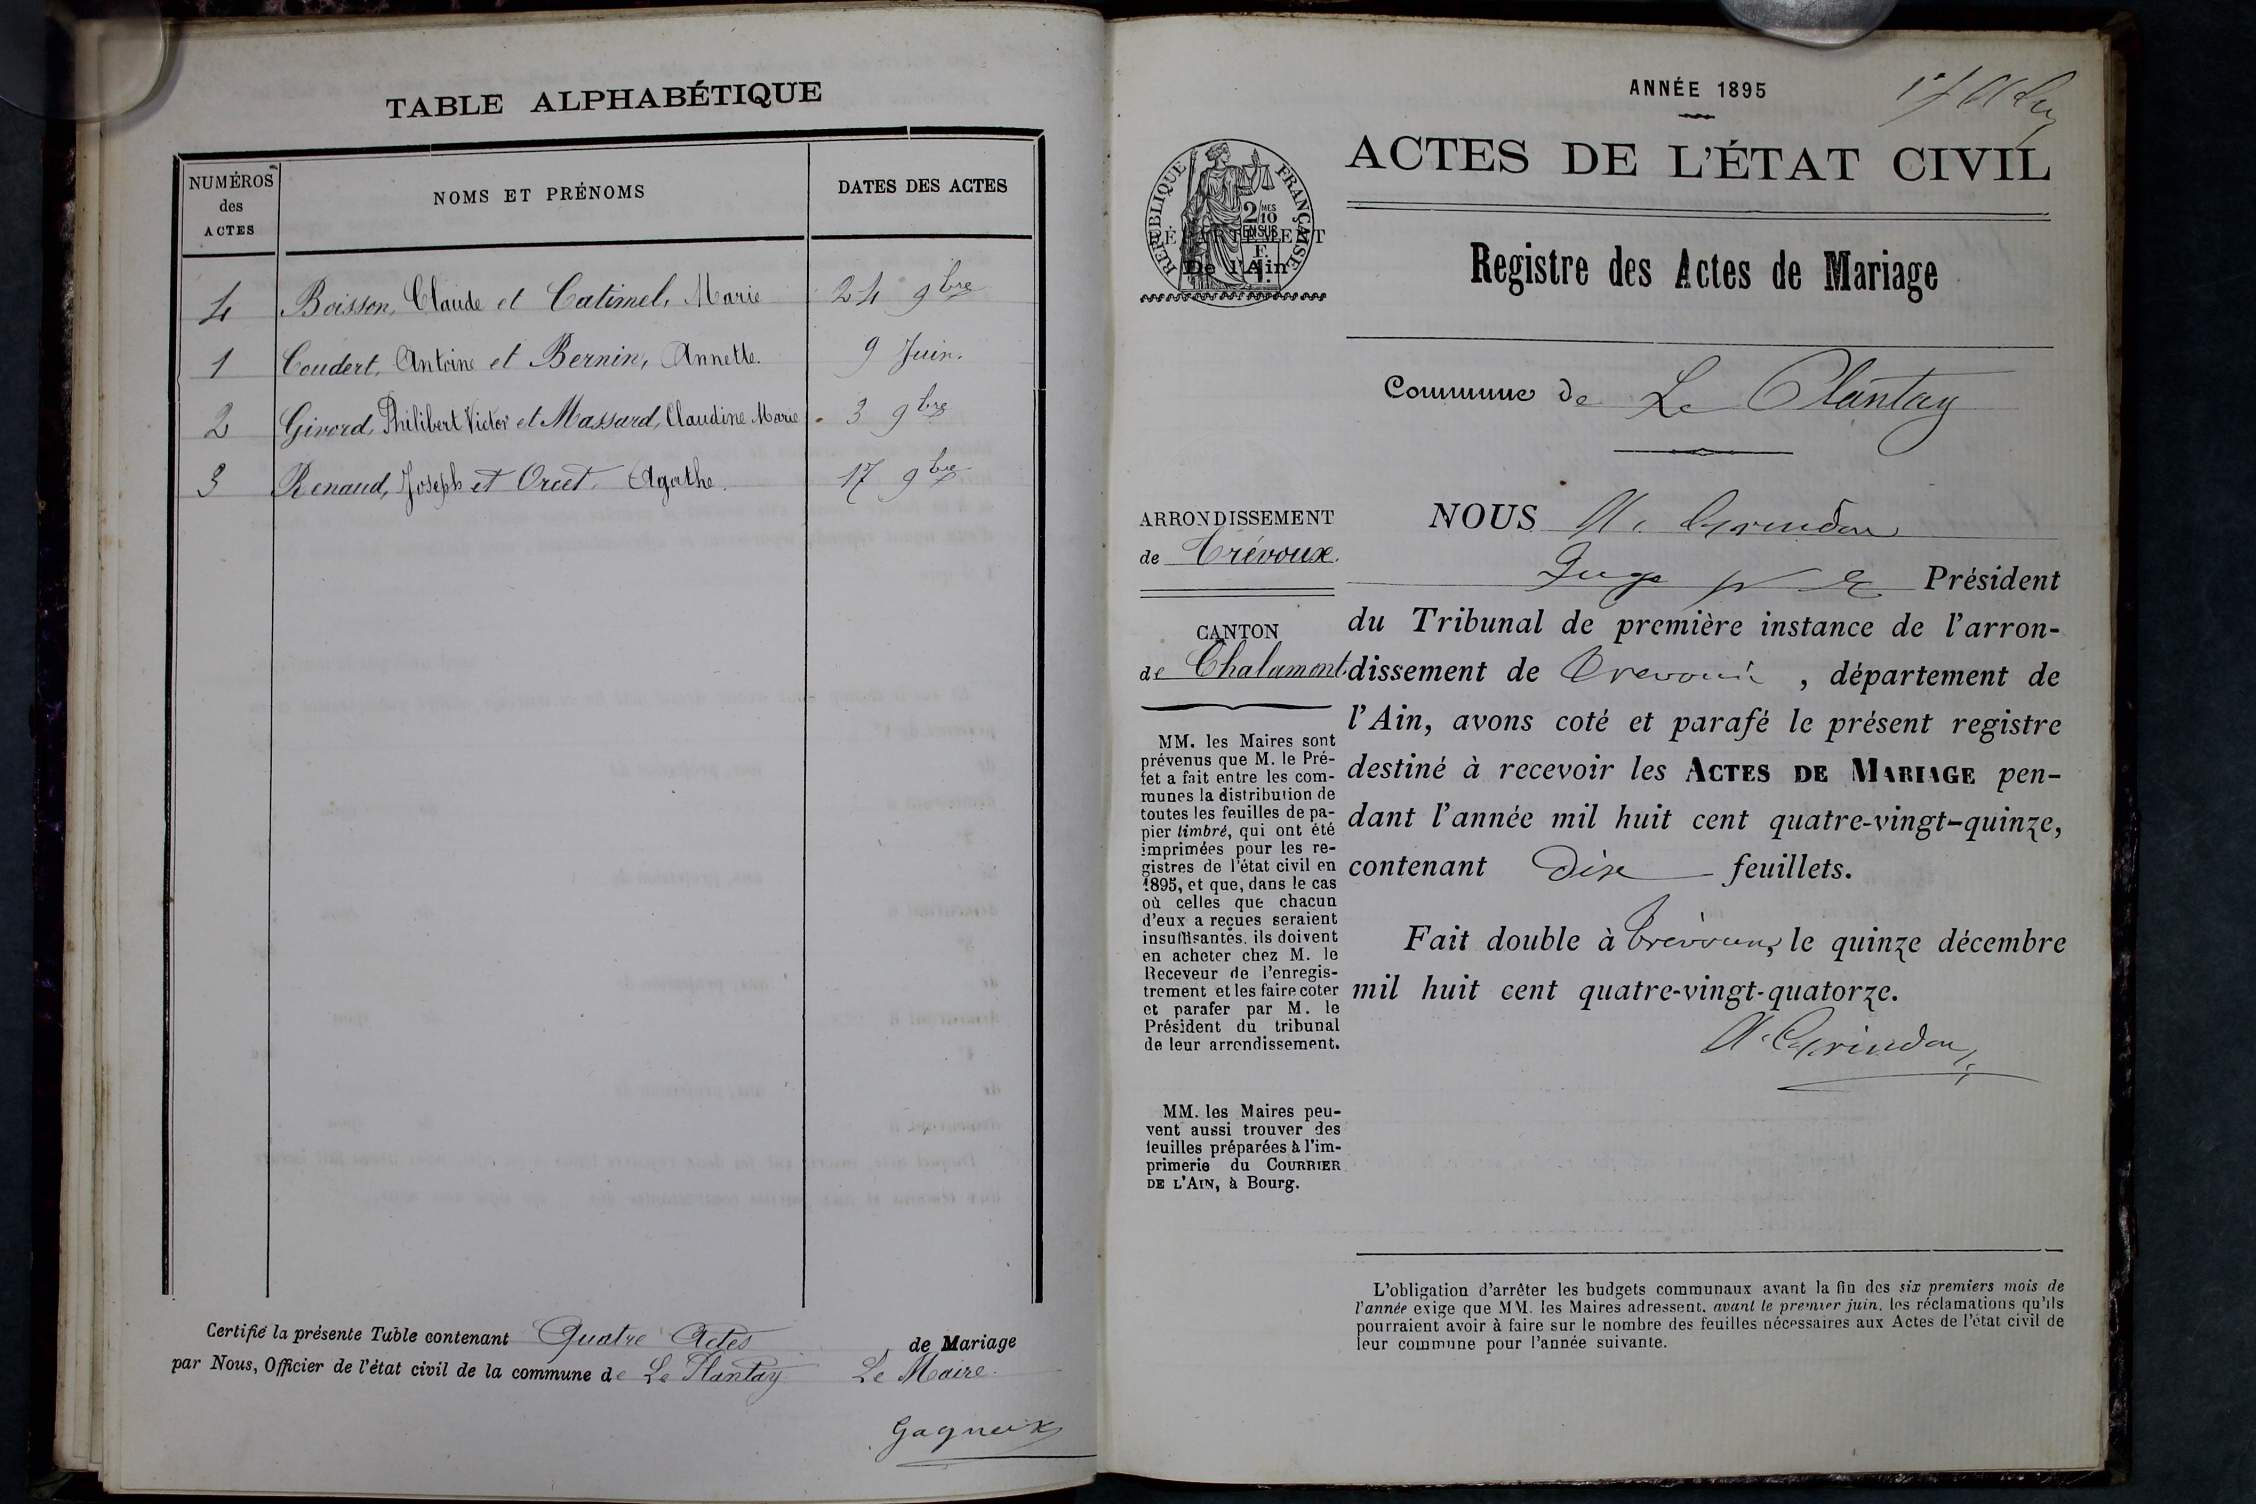 TABLE ALPHABÉTIQUE
NUMÉROS
des
ACTES
NOMS ET PRÉNOMS
DATES DES ACTES
4 Boisson, Claude et Catimel, Marie 24 9bre
1 Coudert, Antoine et Bernin, Annette. 9 Juin.
2 Givord, Philibert Victor et Massard, Claudine Marie 3 9bre
3 Renaud, Joseph et Orcet, Agathe. 17 9bre
Certifié la présente Table contenant Quatre Actes de Mariage
par Nous, Officier de l'état civil de la commune de Le Plantay Le Maire.
Gagneux
ANNÉE 1895
ACTES DE L'ÉTAT CIVIL
RÉPUBLIQUE FRANÇAISE
2/MES
10
EN SUS
DÉPARTEMENT
De l'Ain
Registre des Actes de Mariage
Commune de Le Plantay
ARRONDISSEMENT
de Trévoux.
CANTON
de Chalamont.
MM. les Maires sont
prévenus que M. le Pré-
fet a fait entre les com-
munes la distribution de
toutes les feuilles de pa-
pier timbré, qui ont été
imprimées pour les re-
gistres de l'état civil en
1895, et que, dans le cas
où celles que chacun
d'eux a reçues seraient
insuffisantes, ils doivent
en acheter chez M. le
Receveur de l'enregis-
trement et les faire coter
et parafer par M. le
Président du tribunal
de leur arrondissement.
MM. les Maires peu-
vent aussi trouver des
feuilles préparées à l'im-
primerie du COURRIER
DE L'AIN, à Bourg.
NOUS A. Grindon
Juge Président
du Tribunal de première instance de l'arron-
dissement de Trevoux, département de
l'Ain, avons coté et parafé le présent registre
destiné à recevoir les ACTES DE MARIAGE pen-
dant l'année mil huit cent quatre-vingt-quinze,
contenant Dix feuillets.
Fait double à Trévoux, le quinze décembre
mil huit cent quatre-vingt-quatorze.
A. Grindon
L'obligation d'arrêter les budgets communaux avant la fin des six premiers mois de
l'année exige que MM. les Maires adressent, avant le premier juin, les réclamations qu'ils
pourraient avoir à faire sur le nombre des feuilles nécessaires aux Actes de l'état civil de
leur commune pour l'année suivante.